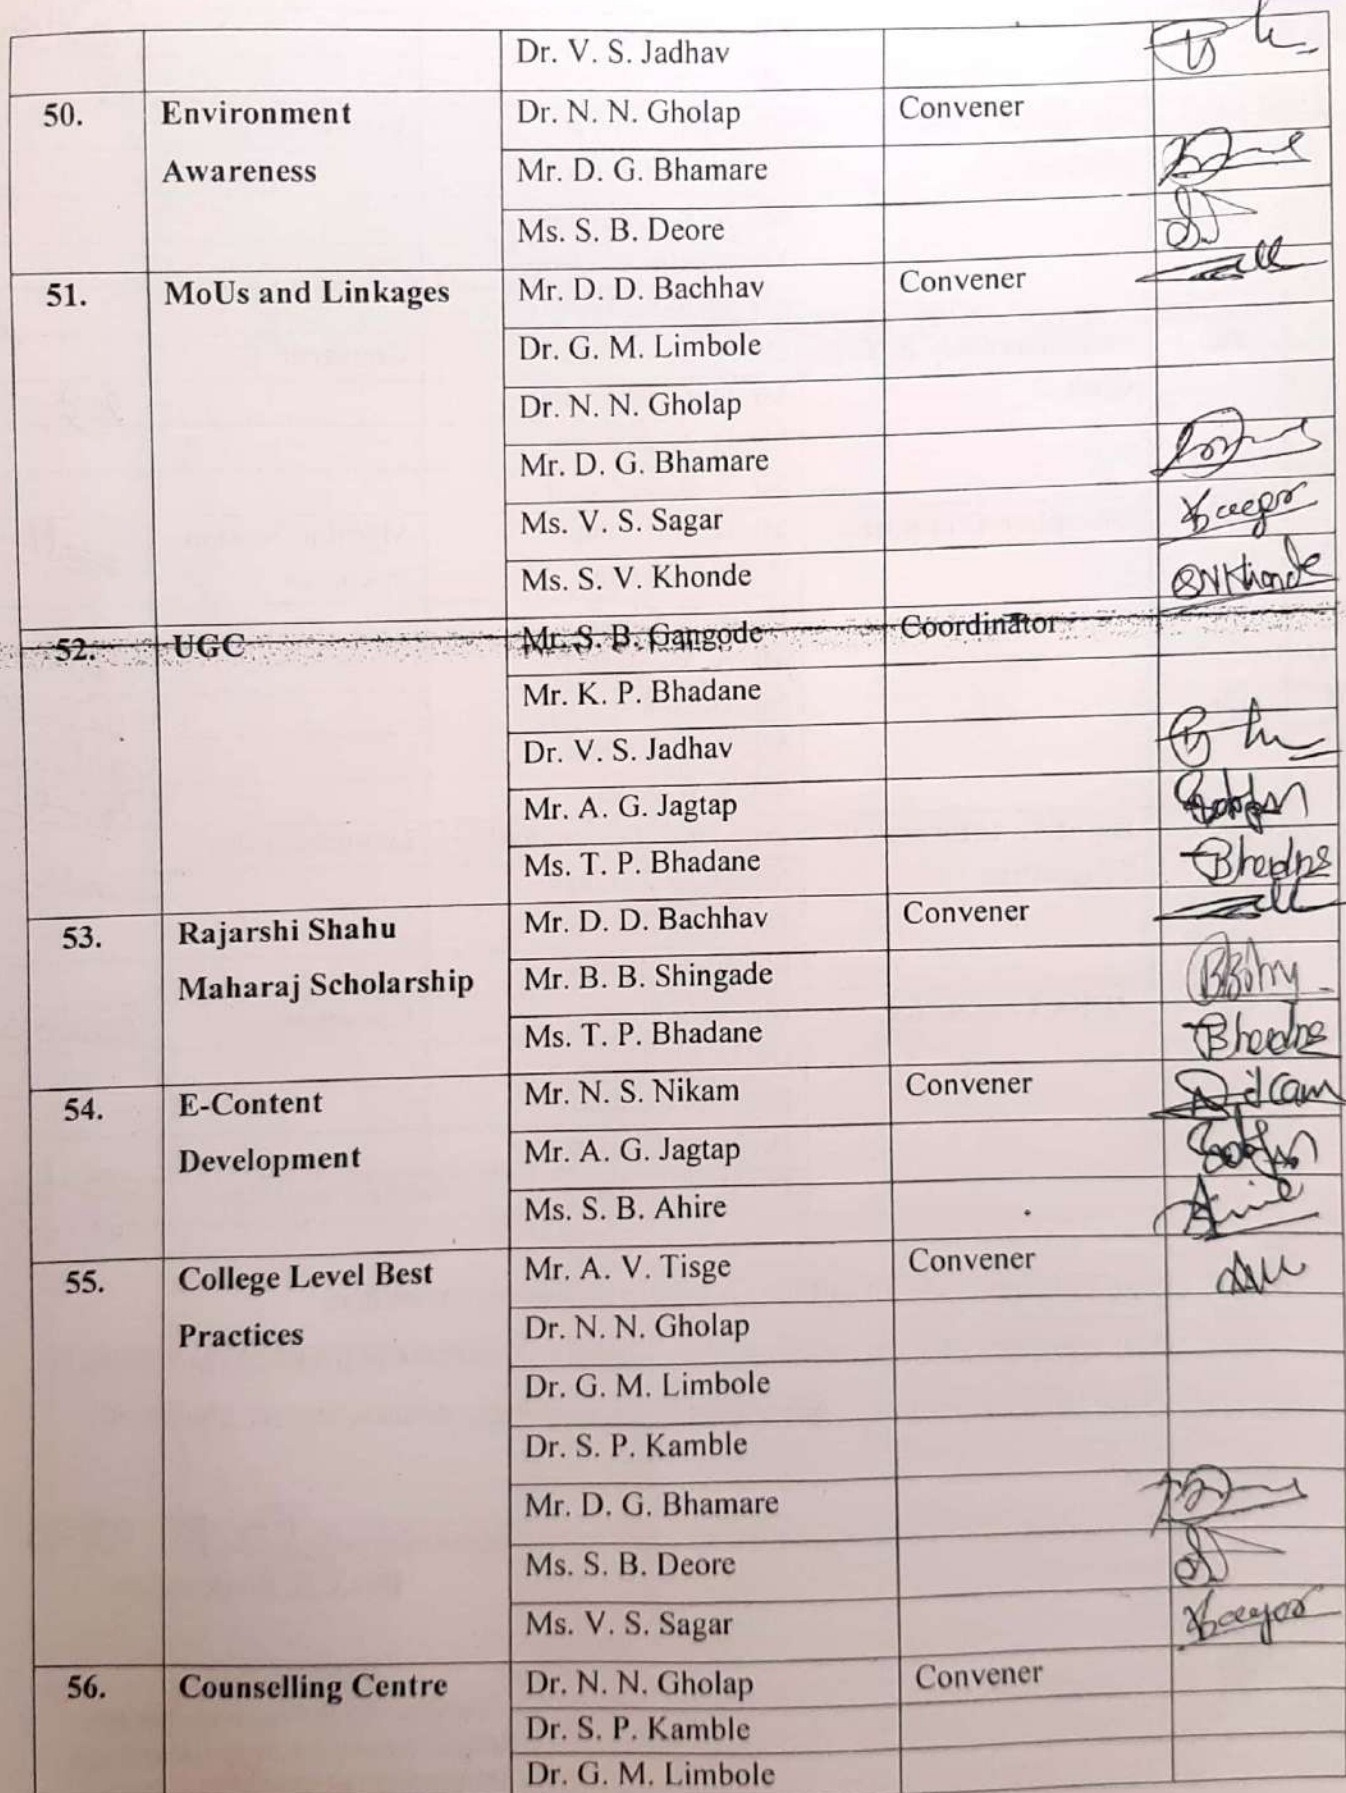 Dr. V. S. Jadhav
50. Environment Dr. N. N. Gholap Convener
Awareness Mr. D. G. Bhamare
Ms. S. B. Deore
51. MoUs and Linkages Mr. D. D. Bachhav Convener
Dr. G. M. Limbole
Dr. N. N. Gholap
Mr. D. G. Bhamare
Ms. V. S. Sagar
Ms. S. V. Khonde SVKhonde
52. UGC Mr. S. B. Gangode Coordinator
Mr. K. P. Bhadane
Dr. V. S. Jadhav
Mr. A. G. Jagtap
Ms. T. P. Bhadane
53. Rajarshi Shahu Mr. D. D. Bachhav Convener
Maharaj Scholarship Mr. B. B. Shingade
Ms. T. P. Bhadane
54. E-Content Mr. N. S. Nikam Convener
Development Mr. A. G. Jagtap
Ms. S. B. Ahire
55. College Level Best Mr. A. V. Tisge Convener
Practices Dr. N. N. Gholap
Dr. G. M. Limbole
Dr. S. P. Kamble
Mr. D. G. Bhamare
Ms. S. B. Deore
Ms. V. S. Sagar
56. Counselling Centre Dr. N. N. Gholap Convener
Dr. S. P. Kamble
Dr. G. M. Limbole